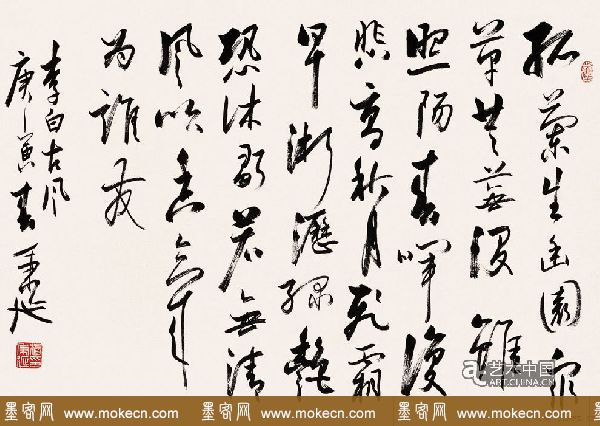 孤蘭生幽園眾
草共蕪沒雖
照陽春暉復
悲高秋月飛霜
早淅瀝綠艷
恐休歇若無清
風吹香氣
为誰发
李白古風
庚寅春
艺术中国
ART.CHINA.CN
墨客网 www.mokecn.com 墨客网 www.mokecn.com 墨客网 www.mokecn.com